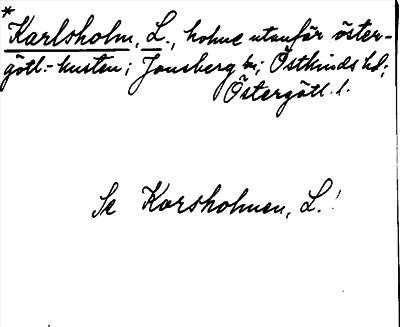 *
Karlsholm, L., holme utanför öster-
götl.-kusten; Jonsberg sn; Östkinds hd;
Östergötl. l.
Se Korsholmen, L.!